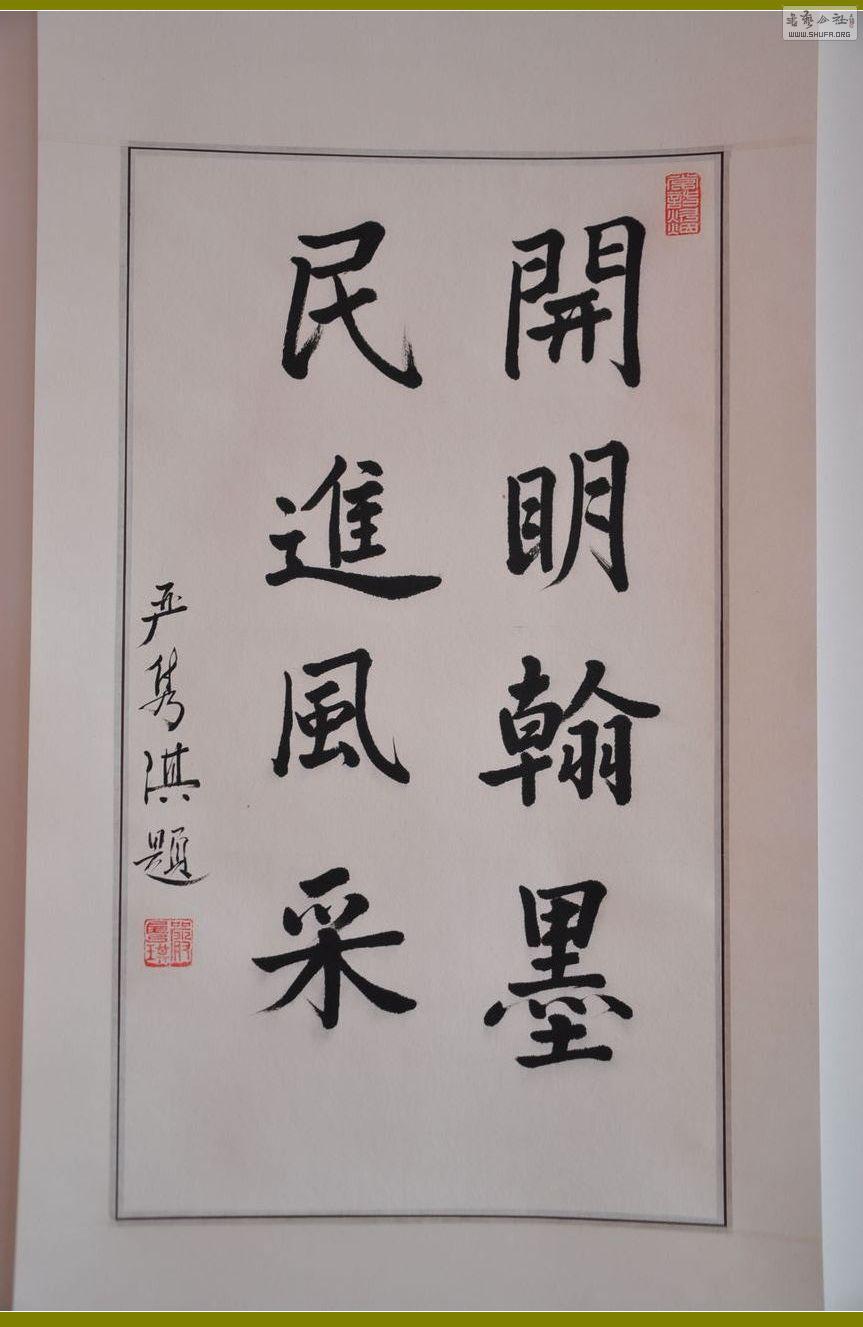 開明翰墨
民進風采
严隽淇題
書藝公社
WWW.SHUFA.ORG